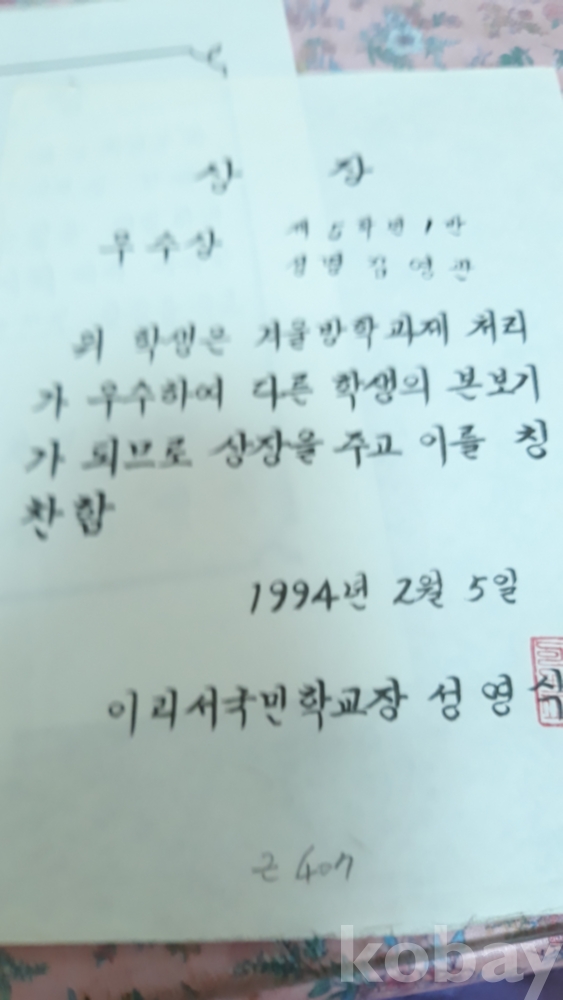 상 장
우수상
제 5 학년 1 반
성명 김 영 관
위 학생은 겨울방학과제 처리
가 우수하여 다른 학생의 본보기
가 되므로 상장을 주고 이를 칭
찬함
1994년 2월 5일
이리서국민학교장 성 영 식
kobay